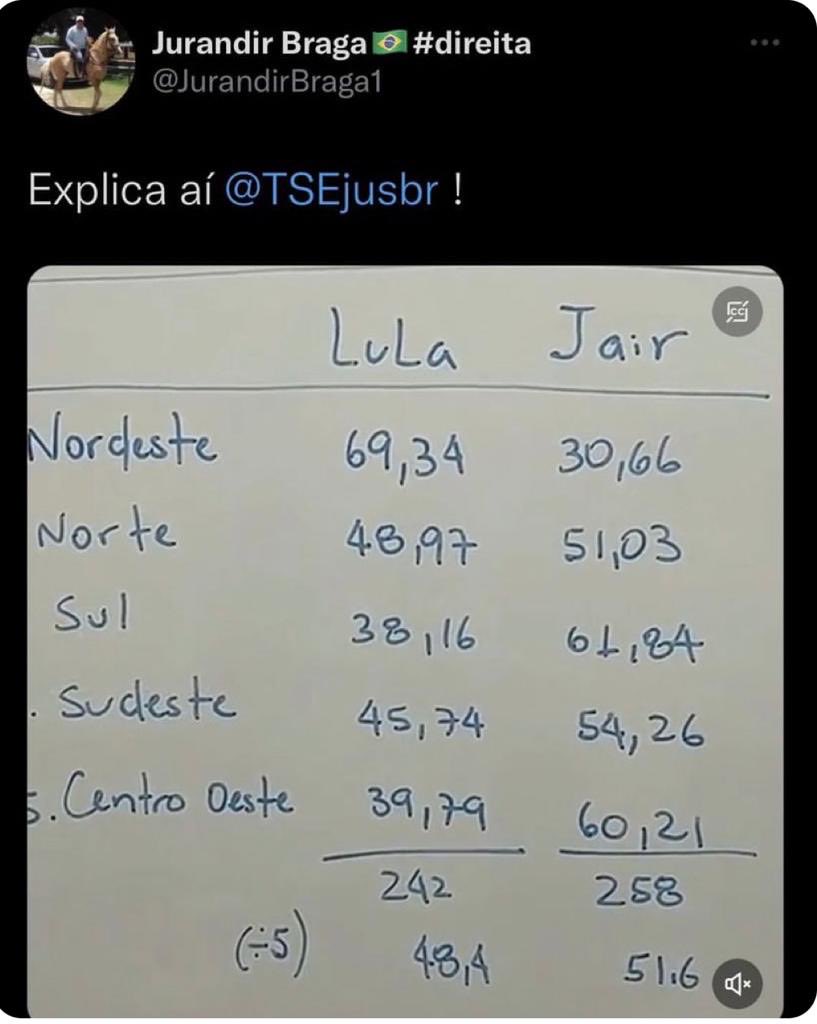 Jurandir Braga🇧🇷#direita
@JurandirBraga1
Explica aí @TSEjusbr !
LuLa Jair
Nordeste 69,34 30,66
Norte 48,97 51,03
Sul 38,16 61,84
. Sudeste 45,74 54,26
5. Centro Oeste 39,79 60,21
242 258
(÷5) 48,4 51.6